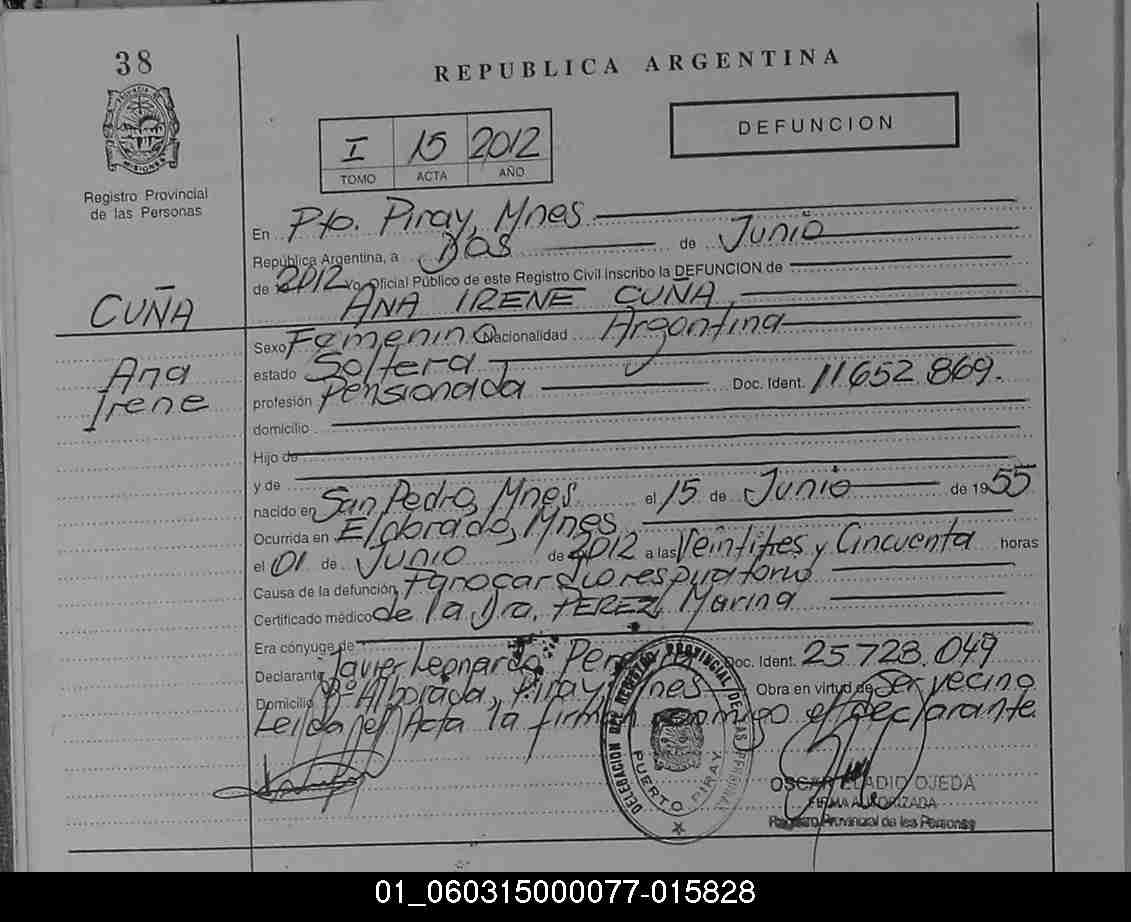 38
REPUBLICA ARGENTINA
PROVINCIA DE MISIONES
Registro Provincial
de las Personas
I 15 2012
TOMO ACTA AÑO
DEFUNCION
En Pto. Piray, Mnes
República Argentina, a Dos de Junio
de 2012 Yo Oficial Público de este Registro Civil inscribo la DEFUNCION de
CUÑA
ANA IRENE CUÑA
Sexo Femenino Nacionalidad Argentina
Ana
Irene
estado Soltera
profesión Pensionada Doc. Ident. 11652.869.
domicilio
Hijo de
y de
nacido en San Pedro, Mnes el 15 de Junio de 1955
Ocurrida en Eldorado, Mnes
el 01 de Junio de 2012 a las Veintitres y Cincuenta horas
Causa de la defunción Parocardiorespiratorio
Certificado médico de la Dra. PEREZ, Marina
Era cónyuge de
Declarante Javier Leonardo Doc. Ident. 25.723.049
Domicilio Bº Alborada, Piray, Mnes Obra en virtud de Ser vecino
Leida el Acta la firman conmigo el declarante
DELEGACION DEL REGISTRO PROVINCIAL DE LAS PERSONAS
PUERTO PIRAY
OSCAR ELADIO OJEDA
FIRMA AUTORIZADA
Registro Provincial de las Personas
01_060315000077-015828